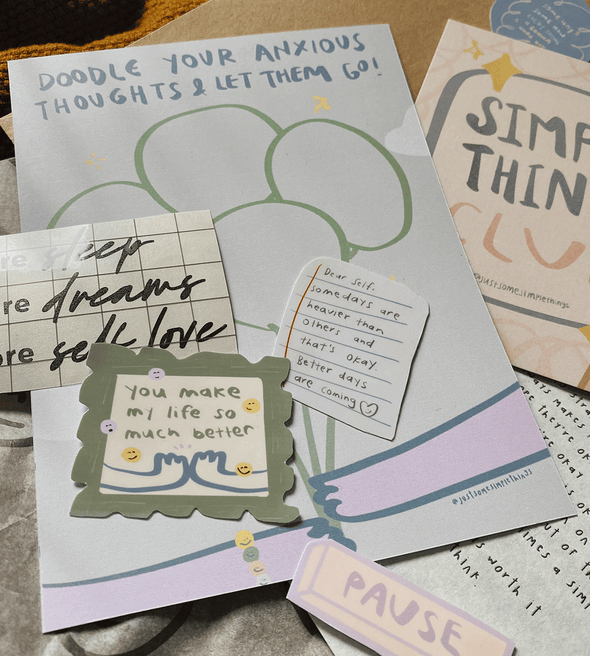 DOODLE YOUR ANXIOUS
THOUGHTS & LET THEM GO!
SIMP
THIN
CLU
@justsomesimplethings
re sleep
re dreams
ore self love
Dear self,
some days are
heavier than
others and
that's okay.
Better days
are coming
you make
my life so
much better
@justsomesimplethings
PAUSE
think.
worth it